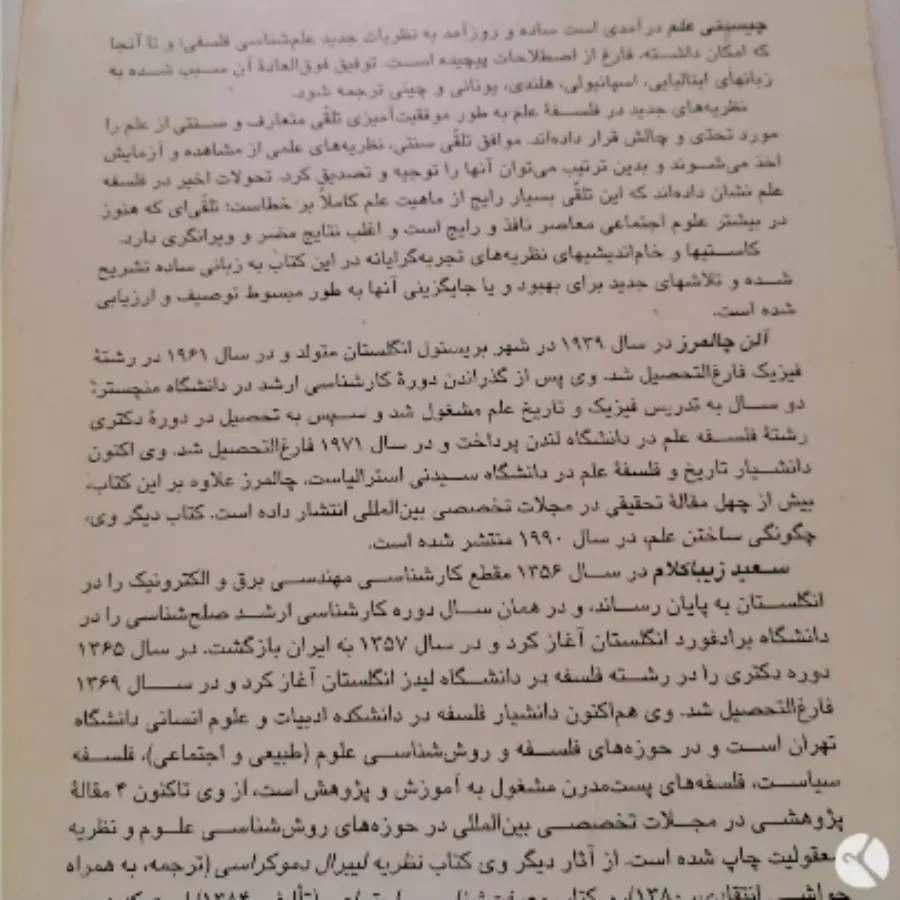 چیستی علم درآمدی است ساده و روزآمد به نظریات جدید علم‌شناسی فلسفی؛ و تا آنجا
که امکان داشته، فارغ از اصطلاحات پیچیده است. توفیق فوق‌العادهٔ آن سبب شده به
زبانهای ایتالیایی، اسپانیولی، هلندی، یونانی و چینی ترجمه شود.
نظریه‌های جدید در فلسفهٔ علم به طور موفقیت‌آمیزی تلقّی متعارف و سنتی از علم را
مورد تحدّی و چالش قرار داده‌اند. موافق تلقّی سنتی، نظریه‌های علمی از مشاهده و آزمایش
اخذ می‌شوند و بدین ترتیب می‌توان آنها را توجیه و تصدیق کرد. تحولات اخیر در فلسفه
علم نشان داده‌اند که این تلقّی بسیار رایج از ماهیت علم کاملاً بر خطاست؛ تلقّی‌ای که هنوز
در بیشتر علوم اجتماعی معاصر نافذ و رایج است و اغلب نتایج مضر و ویرانگری دارد.
کاستیها و خام‌اندیشیهای نظریه‌های تجربه‌گرایانه در این کتاب به زبانی ساده تشریح
شده و تلاشهای جدید برای بهبود و یا جایگزینی آنها به طور مبسوط توصیف و ارزیابی
شده است.
آلن چالمرز در سال ۱۹۳۹ در شهر بریستول انگلستان متولد و در سال ۱۹۶۱ در رشتهٔ
فیزیک فارغ‌التحصیل شد. وی پس از گذراندن دورهٔ کارشناسی ارشد در دانشگاه منچستر؛
دو سال به تدریس فیزیک و تاریخ علم مشغول شد و سپس به تحصیل در دورهٔ دکتری
رشتهٔ فلسفه علم در دانشگاه لندن پرداخت و در سال ۱۹۷۱ فارغ‌التحصیل شد. وی اکنون
دانشیار تاریخ و فلسفهٔ علم در دانشگاه سیدنی استرالیاست. چالمرز علاوه بر این کتاب،
بیش از چهل مقالهٔ تحقیقی در مجلات تخصصی بین‌المللی انتشار داده است. کتاب دیگر وی،
چگونگی ساختن علم، در سال ۱۹۹۰ منتشر شده است.
سعید زیباکلام در سال ۱۳۵۶ مقطع کارشناسی مهندسی برق و الکترونیک را در
انگلستان به پایان رساند، و در همان سال دوره کارشناسی ارشد صلح‌شناسی را در
دانشگاه برادفورد انگلستان آغاز کرد و در سال ۱۳۵۷ به ایران بازگشت. در سال ۱۳۶۵
دوره دکتری را در رشته فلسفه در دانشگاه لیدز انگلستان آغاز کرد و در سال ۱۳۶۹
فارغ‌التحصیل شد. وی هم‌اکنون دانشیار فلسفه در دانشکده ادبیات و علوم انسانی دانشگاه
تهران است و در حوزه‌های فلسفه و روش‌شناسی علوم (طبیعی و اجتماعی)، فلسفه
سیاست، فلسفه‌های پست‌مدرن مشغول به آموزش و پژوهش است، از وی تاکنون ۴ مقالهٔ
پژوهشی در مجلات تخصصی بین‌المللی در حوزه‌های روش‌شناسی علوم و نظریه
معقولیت چاپ شده است. از آثار دیگر وی کتاب نظریه لیبرال دموکراسی (ترجمه، به همراه
حواشی انتقادی، ۱۳۸۰)، و کتاب